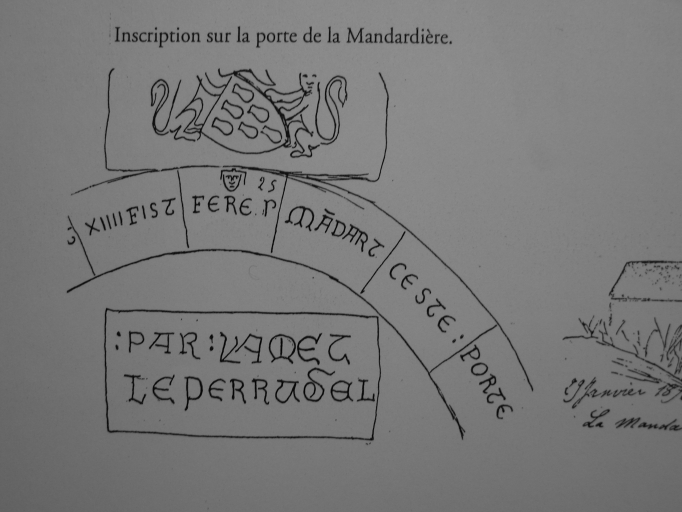 Inscription sur la porte de la Mandardière.
XIIII FIST FERE P MĀDART CESTE : PORTE
25
:PAR:VAMET
LEPERRUDEL
Janvier
La Manda